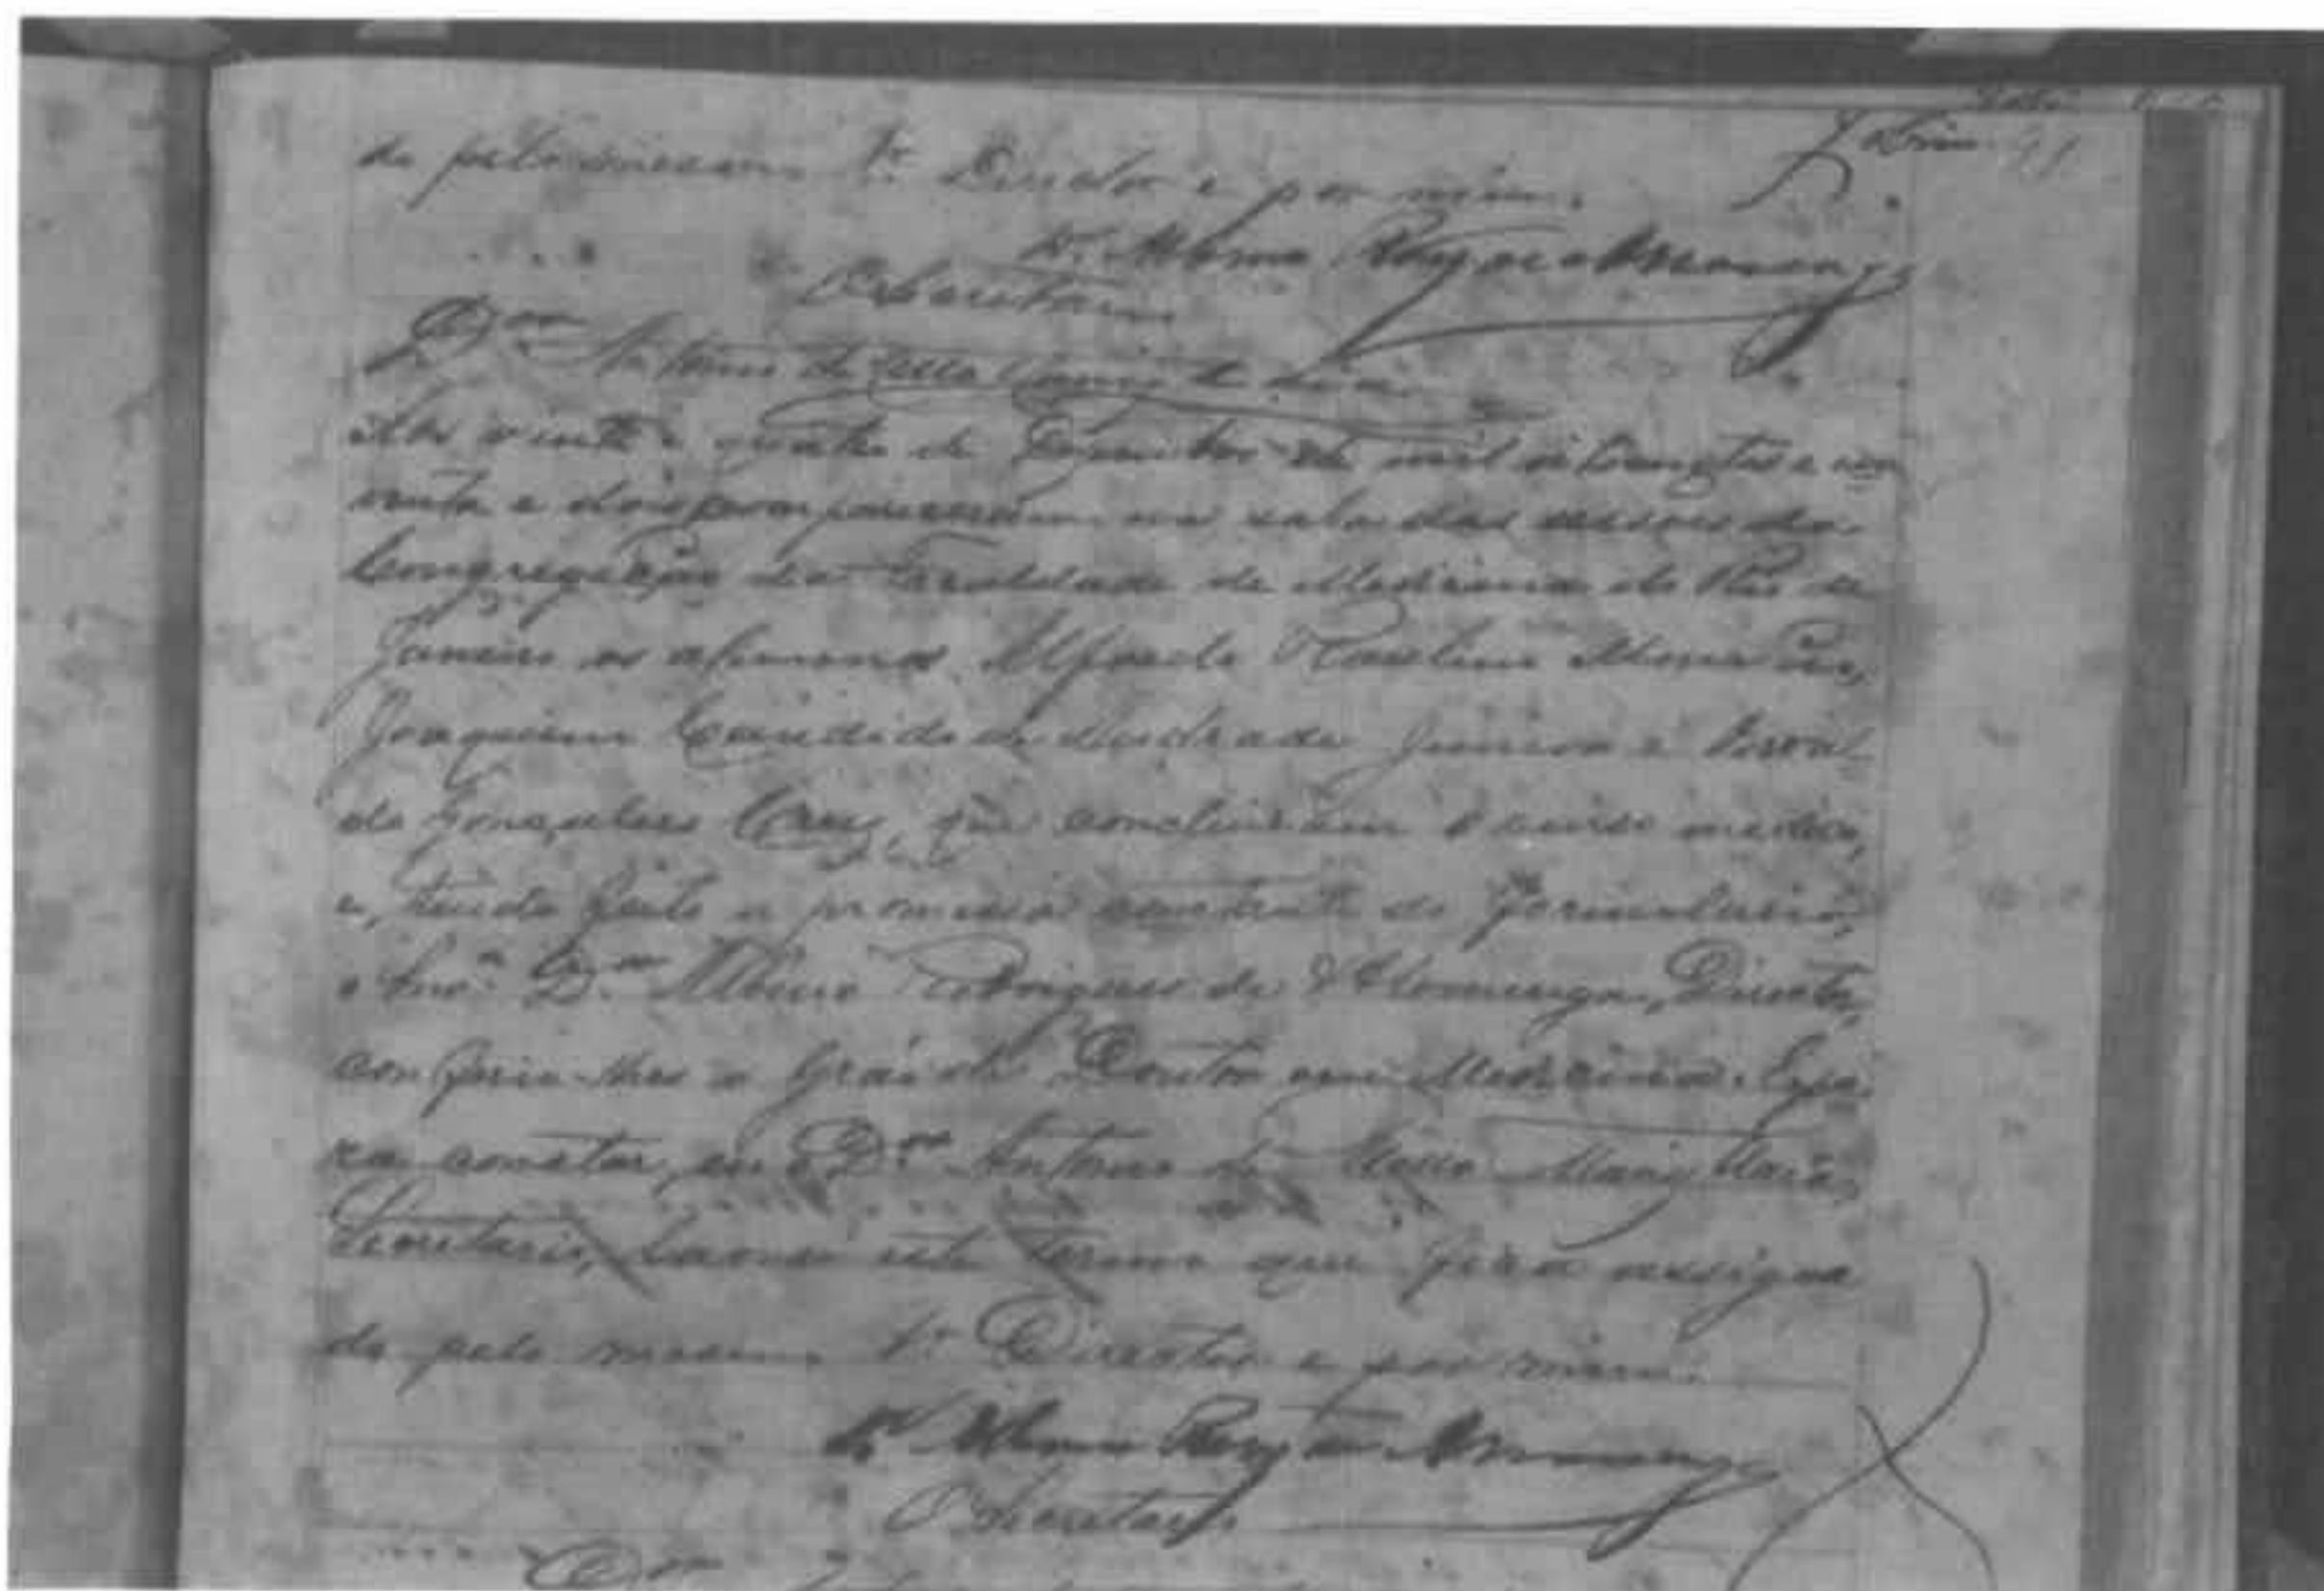 do pelo mesmo Sr. Director e por mim.
Dr. Albino Rodrigues de Alvarenga
O Secretario
Dr. Antonio de Mello Muniz Maia
Aos vinte e quatro de Dezembro de mil oitocentos e no
venta e dois compareceram na sala das sessões da
Congregação da Faculdade de Medicina do Rio de
Janeiro os alumnos Alfredo
Joaquim Candido de Andrade Junior e Oswal
do Gonçalves Cruz, que concluiram o curso medico,
e, tendo feito a promessa constante do formulario,
o Snr. Dr. Albino Rodrigues de Alvarenga, Director,
conferiu-lhes o gráo de Doutor em Medicina. E pa
ra constar, eu Dr. Antonio de Mello Muniz Maia,
Secretario, lavrei este termo que fica assigna
do pelo mesmo Sr. Director e por mim.
Dr. Albino Rodrigues de Alvarenga
O Secretario
Dr.